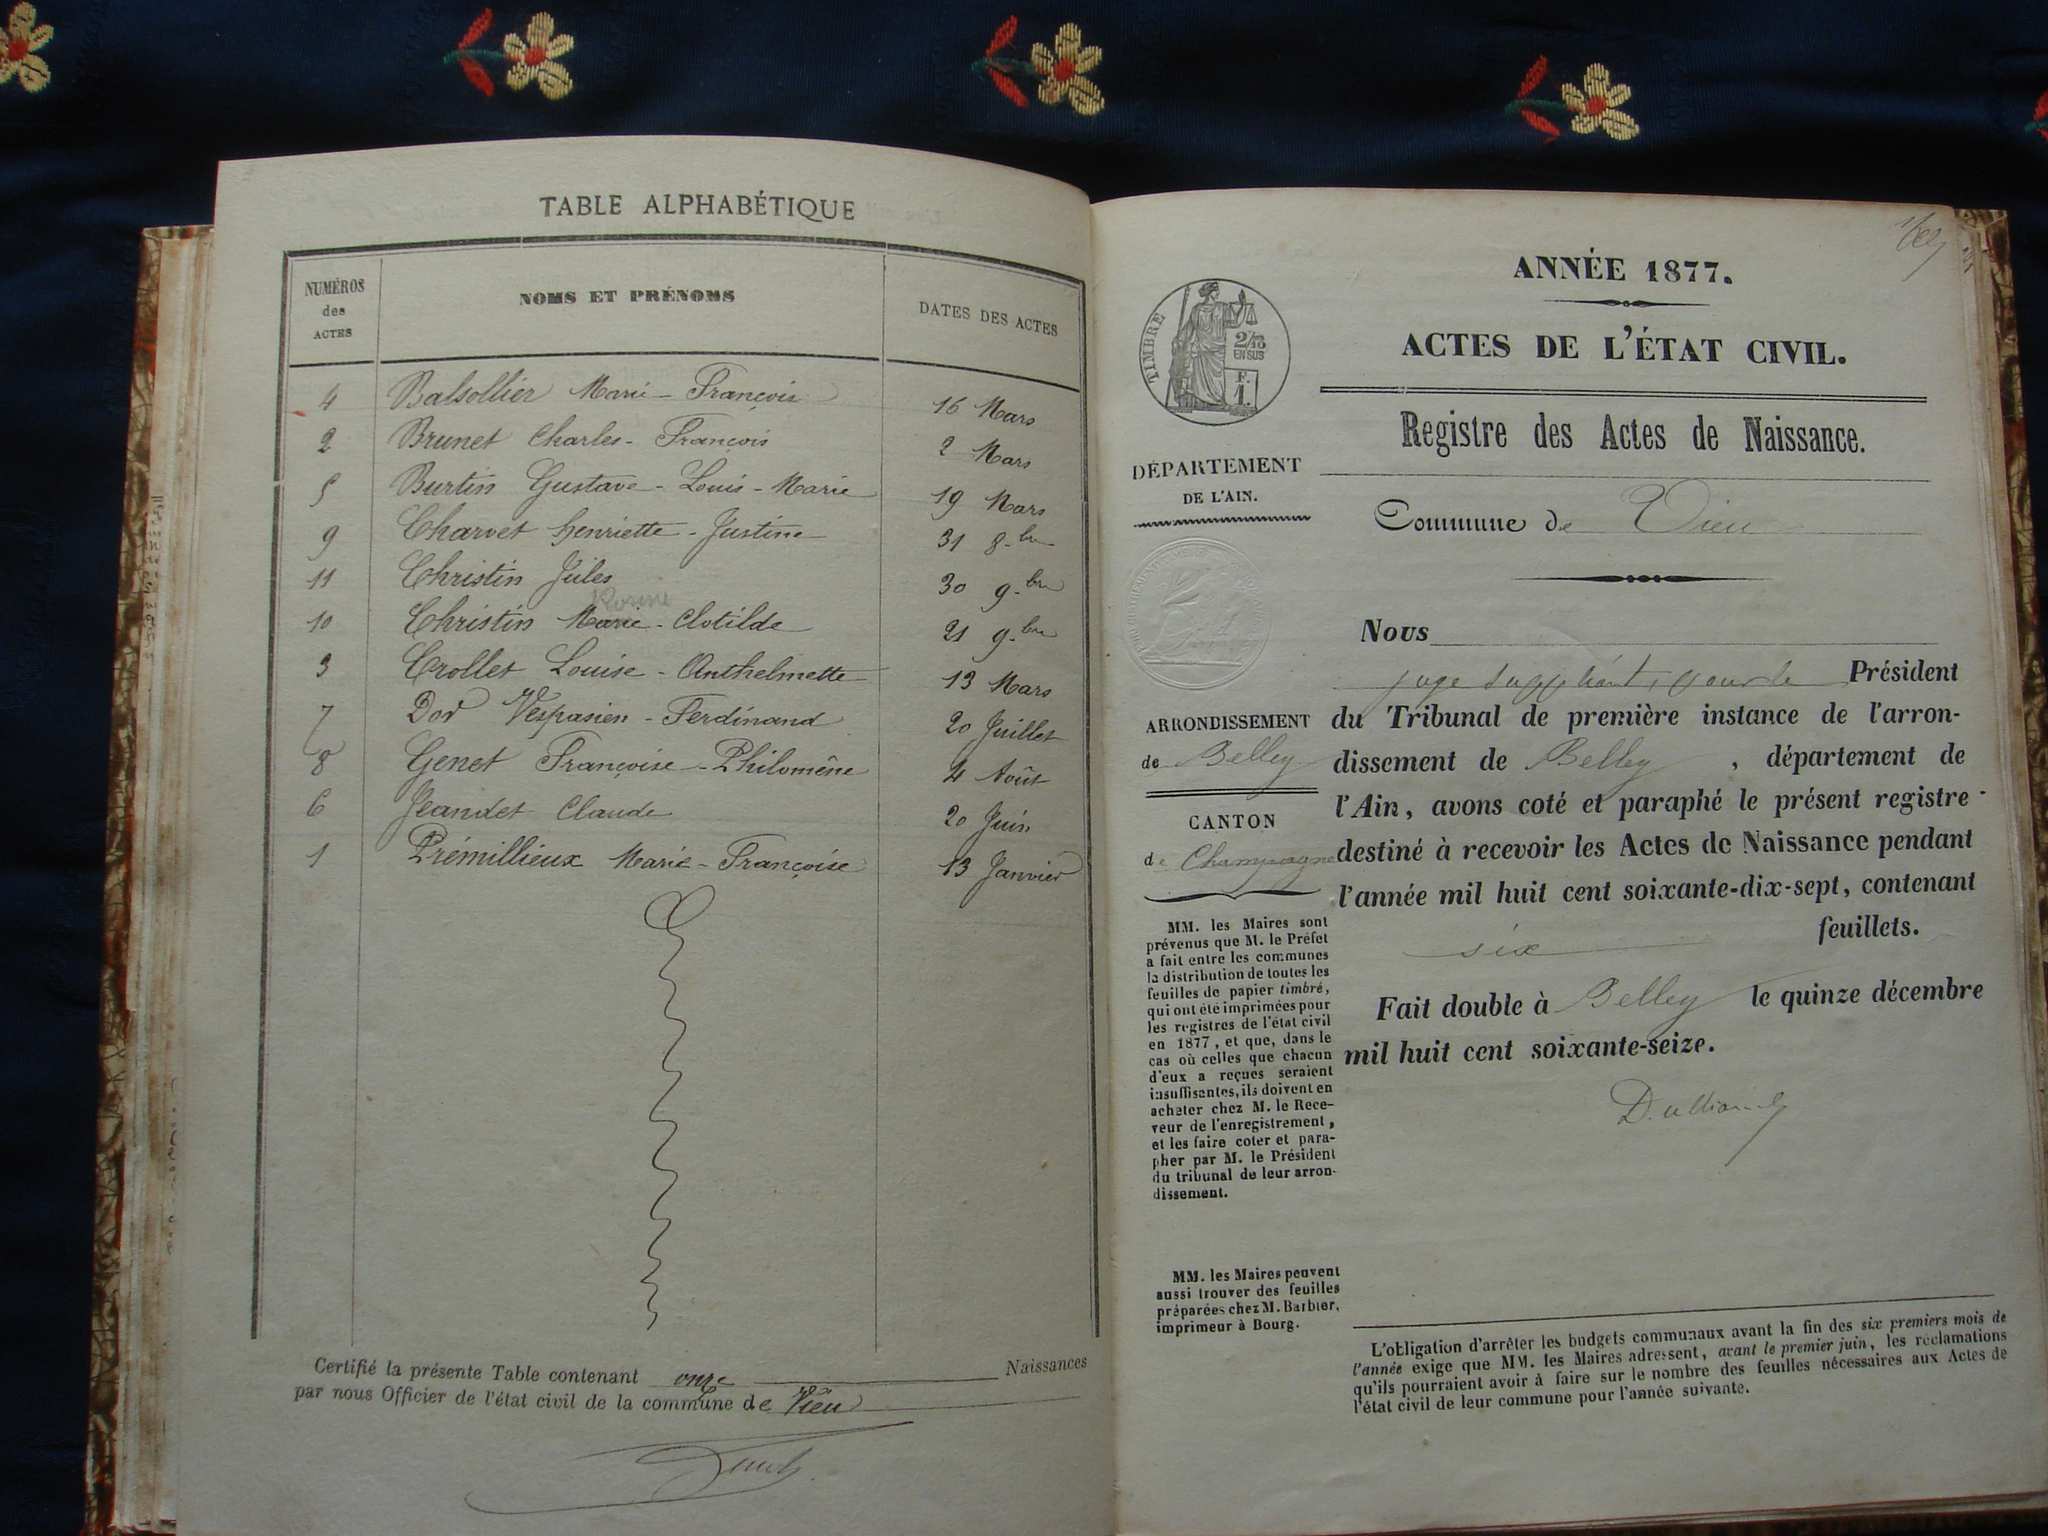 TABLE ALPHABÉTIQUE
NUMÉROS des ACTES NOMS ET PRÉNOMS DATES DES ACTES
4 Balsollier Marie-François 16 Mars
2 Brunet Charles-François 2 Mars
5 Burtin Gustave-Louis-Marie 19 Mars
9 Charvet henriette-Justine 31 8-bre
11 Christin Jules 30 9-bre
Rosine
10 Christin Marie-Clotilde 21 9-bre
3 Crollet Louise-Anthelmette 13 Mars
7 Dor Vespasien-Ferdinand 20 Juillet
8 Genet Françoise-Philomène 4 Août
6 Jeandet Claude 20 Juin
1 Prémillieux Marie-Françoise 13 Janvier
Certifié la présente Table contenant onze Naissances
par nous Officier de l'état civil de la commune de Vieu
ANNÉE 1877.
ACTES DE L'ÉTAT CIVIL.
TIMBRE
2/10
EN SUS
F.
1.
Registre des Actes de Naissance.
DÉPARTEMENT
DE L'AIN.
Commune de Vieu
Nous
juge suppléant, pour le Président
du Tribunal de première instance de l'arron-
dissement de Belley, département de
l'Ain, avons coté et paraphé le présent registre
destiné à recevoir les Actes de Naissance pendant
l'année mil huit cent soixante-dix-sept, contenant
six feuillets.
Fait double à Belley le quinze décembre
mil huit cent soixante-seize.
ARRONDISSEMENT
de Belley
CANTON
de Champagne
MM. les Maires sont
prévenus que M. le Préfet
a fait entre les communes
la distribution de toutes les
feuilles de papier timbré,
qui ont été imprimées pour
les registres de l'état civil
en 1877, et que, dans le
cas où celles que chacun
d'eux a reçues seraient
insuffisantes, ils doivent en
acheter chez M. le Rece-
veur de l'enregistrement,
et les faire coter et para-
pher par M. le Président
du tribunal de leur arron-
dissement.
MM. les Maires peuvent
aussi trouver des feuilles
préparées chez M. Barbier,
imprimeur à Bourg.
L'obligation d'arrêter les budgets communaux avant la fin des six premiers mois de
l'année exige que MM. les Maires adressent, avant le premier juin, les réclamations
qu'ils pourraient avoir à faire sur le nombre des feuilles nécessaires aux Actes de
l'état civil de leur commune pour l'année suivante.